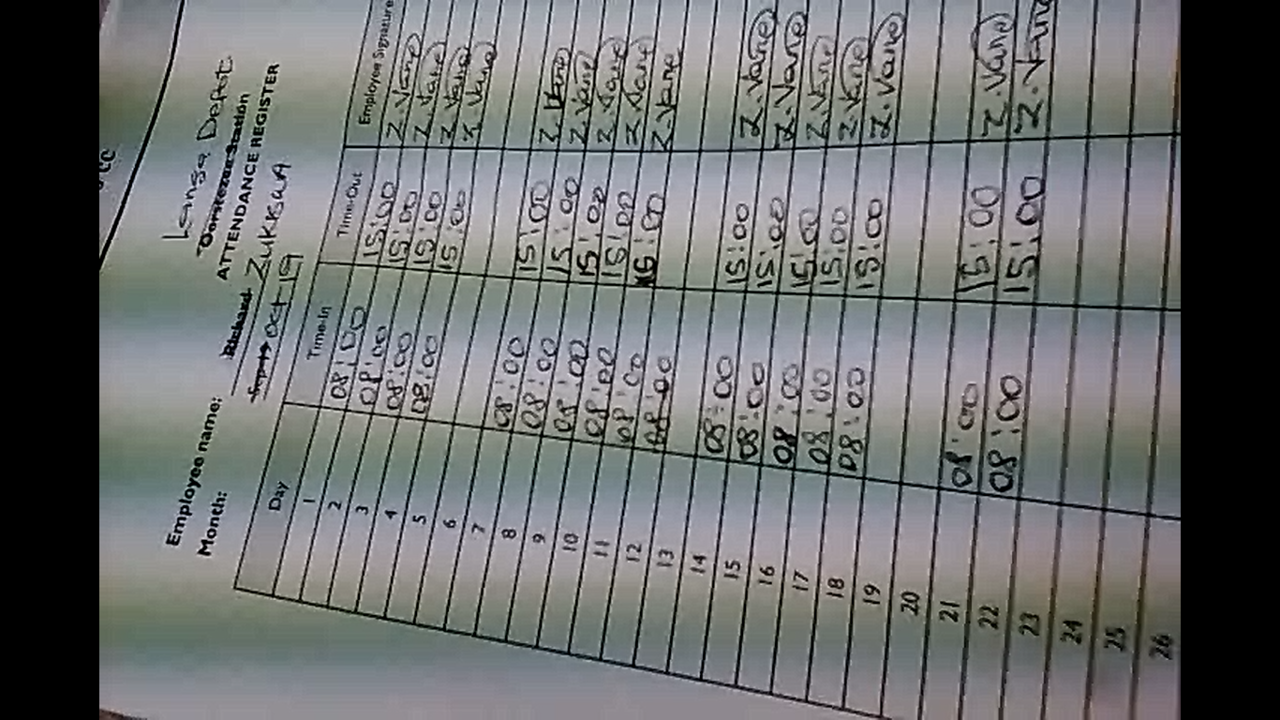 Langa Depot
ATTENDANCE REGISTER
Employee name: Zukkswa
Month: Sept → Oct 19
Day Time-In Time-Out Employee Signature
1 08:00 15:00 Z.Vane
2 08:00 15:00 Z.Vane
3 08:00 15:00 Z.Vane
4 08:00 15:00 Z.Vane
5
6
7 08:00 15:00 Z.Vane
8 08:00 15:00 Z.Vane
9 08:00 15:00 Z.Vane
10 08:00 15:00 Z.Vane
11 08:00 15:00 Z.Vane
12 08:00
13
14 08:00 15:00 Z.Vane
15 08:00 15:00 Z.Vane
16 08:00 15:00 Z.Vane
17 08:00 15:00 Z.Vane
18 08:00 15:00 Z.Vane
19
20
21 08:00 15:00 Z.Vane
22 08:00 15:00 Z.Vane
23
24
25
26